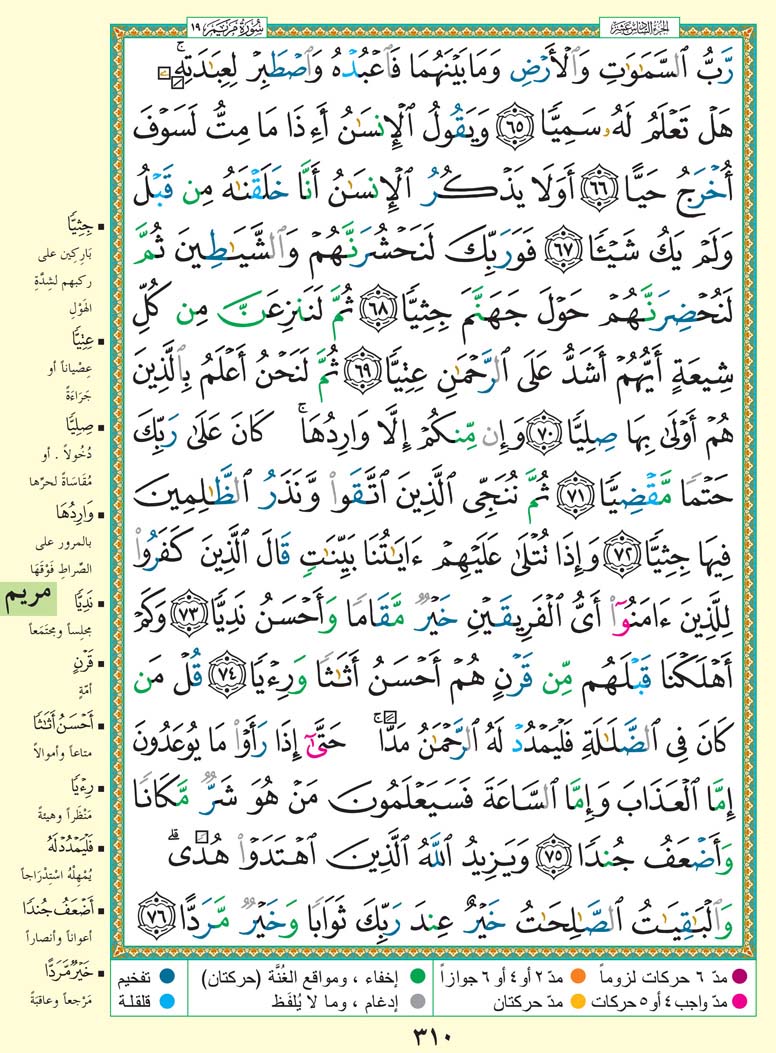 سُورَةُ مَرْيَمَ ١٩
الجزء السادس عشر
رَّبُّ ٱلسَّمَٰوَٰتِ وَٱلْأَرْضِ وَمَا بَيْنَهُمَا فَٱعْبُدْهُ وَٱصْطَبِرْ لِعِبَٰدَتِهِۦۚ
هَلْ تَعْلَمُ لَهُۥ سَمِيًّا ٦٥ وَيَقُولُ ٱلْإِنسَٰنُ أَءِذَا مَا مِتُّ لَسَوْفَ
أُخْرَجُ حَيًّا ٦٦ أَوَلَا يَذْكُرُ ٱلْإِنسَٰنُ أَنَّا خَلَقْنَٰهُ مِن قَبْلُ
وَلَمْ يَكُ شَيْـًٔا ٦٧ فَوَرَبِّكَ لَنَحْشُرَنَّهُمْ وَٱلشَّيَٰطِينَ ثُمَّ
لَنُحْضِرَنَّهُمْ حَوْلَ جَهَنَّمَ جِثِيًّا ٦٨ ثُمَّ لَنَنزِعَنَّ مِن كُلِّ
شِيعَةٍ أَيُّهُمْ أَشَدُّ عَلَى ٱلرَّحْمَٰنِ عِتِيًّا ٦٩ ثُمَّ لَنَحْنُ أَعْلَمُ بِٱلَّذِينَ
هُمْ أَوْلَىٰ بِهَا صِلِيًّا ٧٠ وَإِن مِّنكُمْ إِلَّا وَارِدُهَاۚ كَانَ عَلَىٰ رَبِّكَ
حَتْمًا مَّقْضِيًّا ٧١ ثُمَّ نُنَجِّى ٱلَّذِينَ ٱتَّقَوا۟ وَّنَذَرُ ٱلظَّٰلِمِينَ
فِيهَا جِثِيًّا ٧٢ وَإِذَا تُتْلَىٰ عَلَيْهِمْ ءَايَٰتُنَا بَيِّنَٰتٍ قَالَ ٱلَّذِينَ كَفَرُوا۟
لِلَّذِينَ ءَامَنُوٓا۟ أَىُّ ٱلْفَرِيقَيْنِ خَيْرٌ مَّقَامًا وَأَحْسَنُ نَدِيًّا ٧٣ وَكَمْ
أَهْلَكْنَا قَبْلَهُم مِّن قَرْنٍ هُمْ أَحْسَنُ أَثَٰثًا وَرِءْيًا ٧٤ قُلْ مَن
كَانَ فِى ٱلضَّلَٰلَةِ فَلْيَمْدُدْ لَهُ ٱلرَّحْمَٰنُ مَدًّاۚ حَتَّىٰٓ إِذَا رَأَوْا۟ مَا يُوعَدُونَ
إِمَّا ٱلْعَذَابَ وَإِمَّا ٱلسَّاعَةَ فَسَيَعْلَمُونَ مَنْ هُوَ شَرٌّ مَّكَانًا
وَأَضْعَفُ جُندًا ٧٥ وَيَزِيدُ ٱللَّهُ ٱلَّذِينَ ٱهْتَدَوْا۟ هُدًىۗ
وَٱلْبَٰقِيَٰتُ ٱلصَّٰلِحَٰتُ خَيْرٌ عِندَ رَبِّكَ ثَوَابًا وَخَيْرٌ مَّرَدًّا ٧٦
جِثِيًّا
بَارِكِين على
ركبهم لشِدَّةِ
الهَوْلِ
عِتِيًّا
عِصْياناً أو
جَرَاءَةً
صِلِيًّا
دُخُولاً . أو
مُقَاسَاةً لحرِّها
وَارِدُهَا
بالمرور على
الصِّراطِ فَوْقَهَا
مريم
نَدِيًّا
مجلساً ومجتمَعاً
قَرْنٍ
أمّةٍ
أَحْسَنُ أَثَٰثًا
متاعاً وأموالاً
رِءْيًا
مَنْظَراً وهيئةً
فَلْيَمْدُدْ لَهُ
يُمْهِلْهُ اسْتِدْرَاجاً
أَضْعَفُ جُندًا
أعواناً وأنصاراً
خَيْرٌ مَّرَدًّا
مَرْجعاً وعاقبَةً
مدّ ٦ حركات لزوماً
مدّ ٢ أو ٤ أو ٦ جوازاً
إخفاء ، ومواقع الغُنَّة (حركتان)
تفخيم
مدّ واجب ٤ أو ٥ حركات
مدّ حركتان
إدغام ، وما لا يُلفَظ
قلقلة
٣١٠